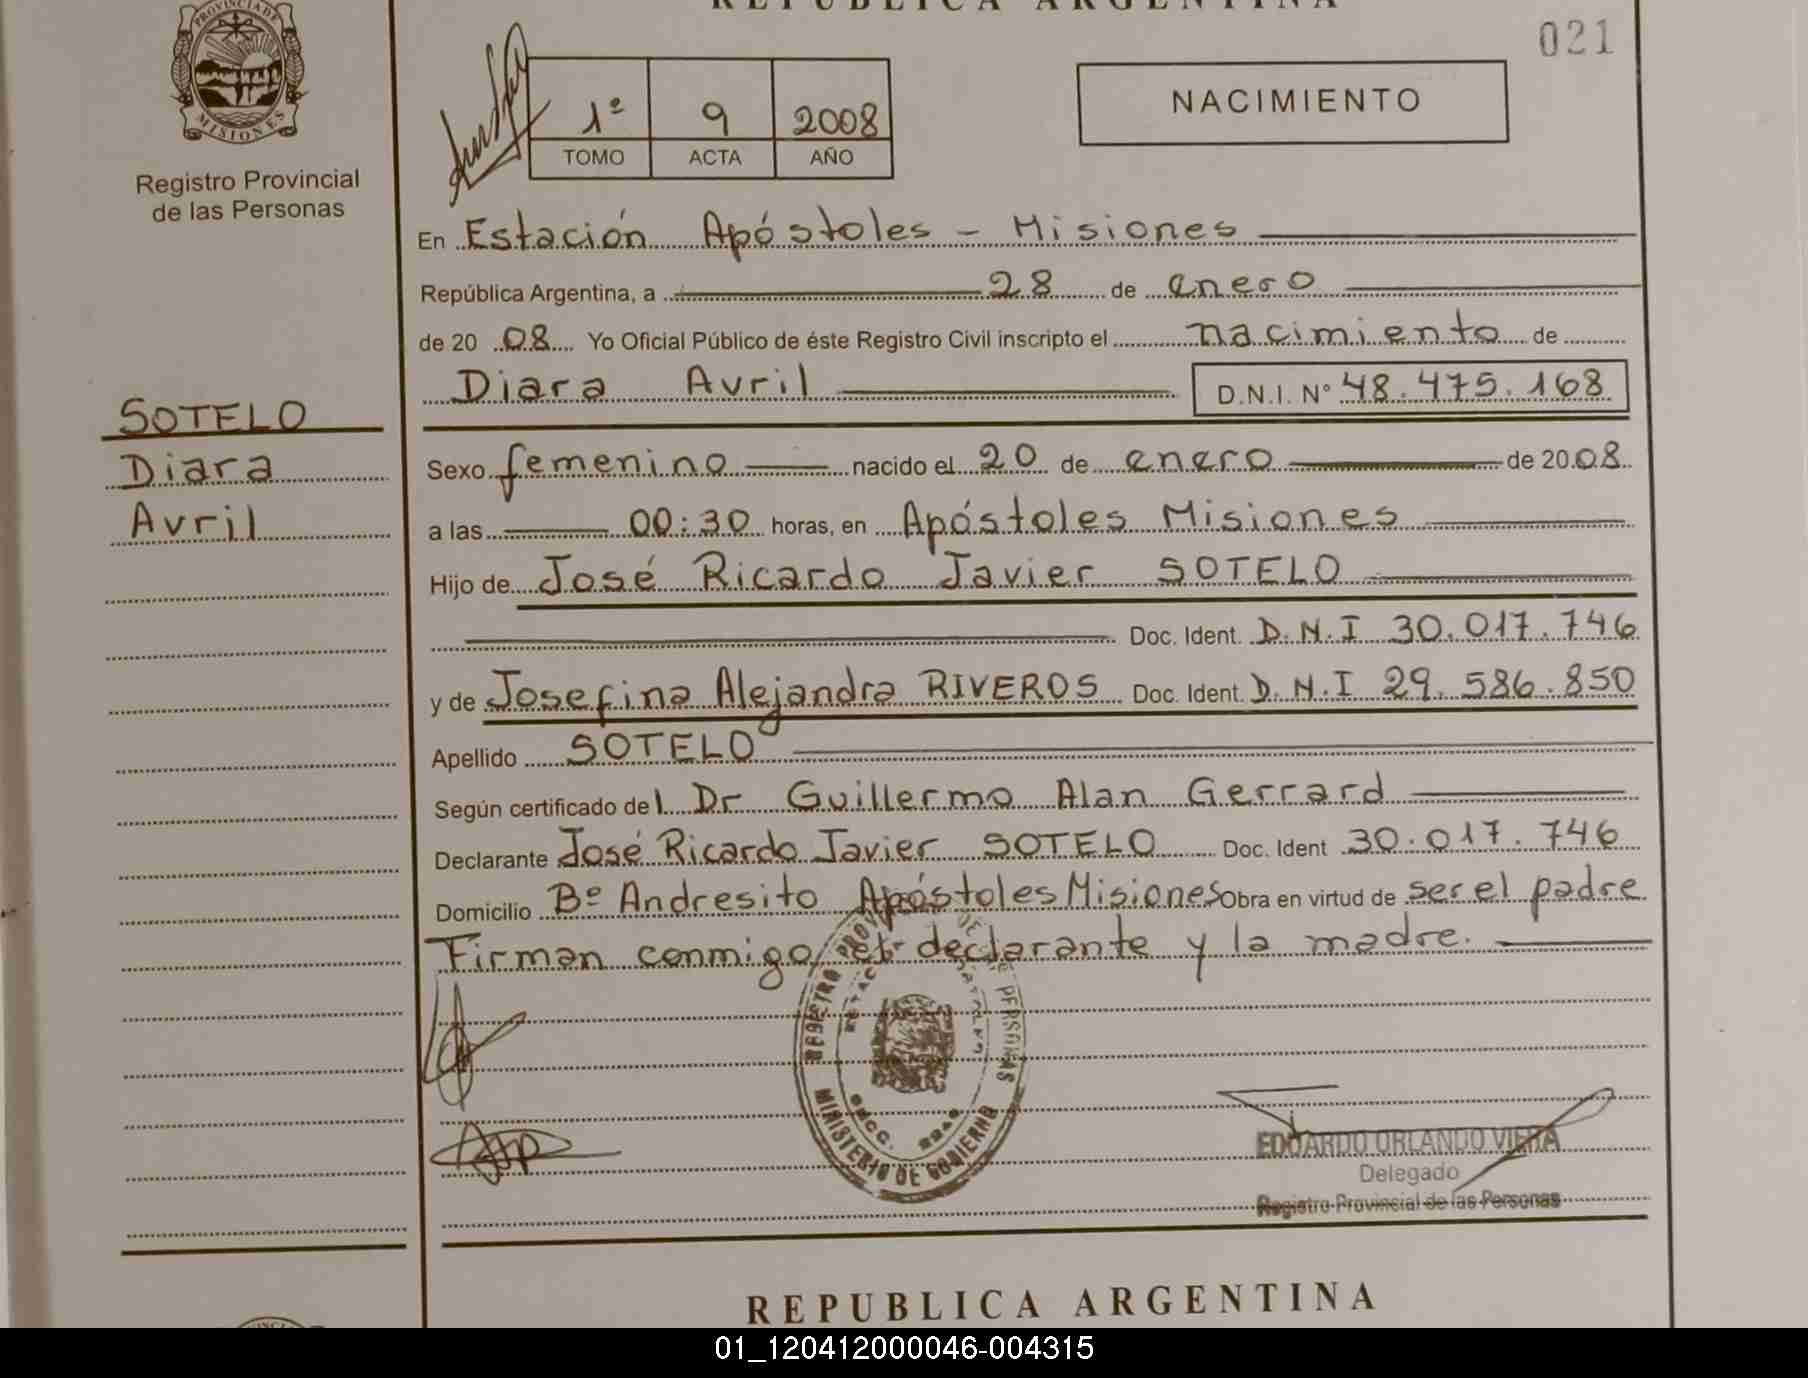 REPUBLICA ARGENTINA
021
PROVINCIA DE
MISIONES
Registro Provincial
de las Personas
1º 9 2008
TOMO ACTA AÑO
NACIMIENTO
En Estación Apóstoles - Misiones
República Argentina, a 28 de enero
de 20 08 Yo Oficial Público de éste Registro Civil inscripto el nacimiento de
Diara Avril D.N.I. Nº 48.475.168
SOTELO
Diara
Avril
Sexo femenino nacido el 20 de enero de 20 08
a las 00:30 horas, en Apóstoles Misiones
Hijo de José Ricardo Javier SOTELO
Doc. Ident. D.N.I 30.017.746
y de Josefina Alejandra RIVEROS Doc. Ident. D.N.I 29.586.850
Apellido SOTELO
Según certificado del Dr Guillermo Alan Gerrard
Declarante José Ricardo Javier SOTELO Doc. Ident 30.017.746
Domicilio Bº Andresito Apóstoles Misiones Obra en virtud de ser el padre
Firman conmigo el declarante y la madre.
REGISTRO PROV DE PERSONAS
MINISTERIO DE GOBIERNO
EDUARDO ORLANDO VIERA
Delegado
Registro Provincial de las Personas
REPUBLICA ARGENTINA
01_120412000046-004315